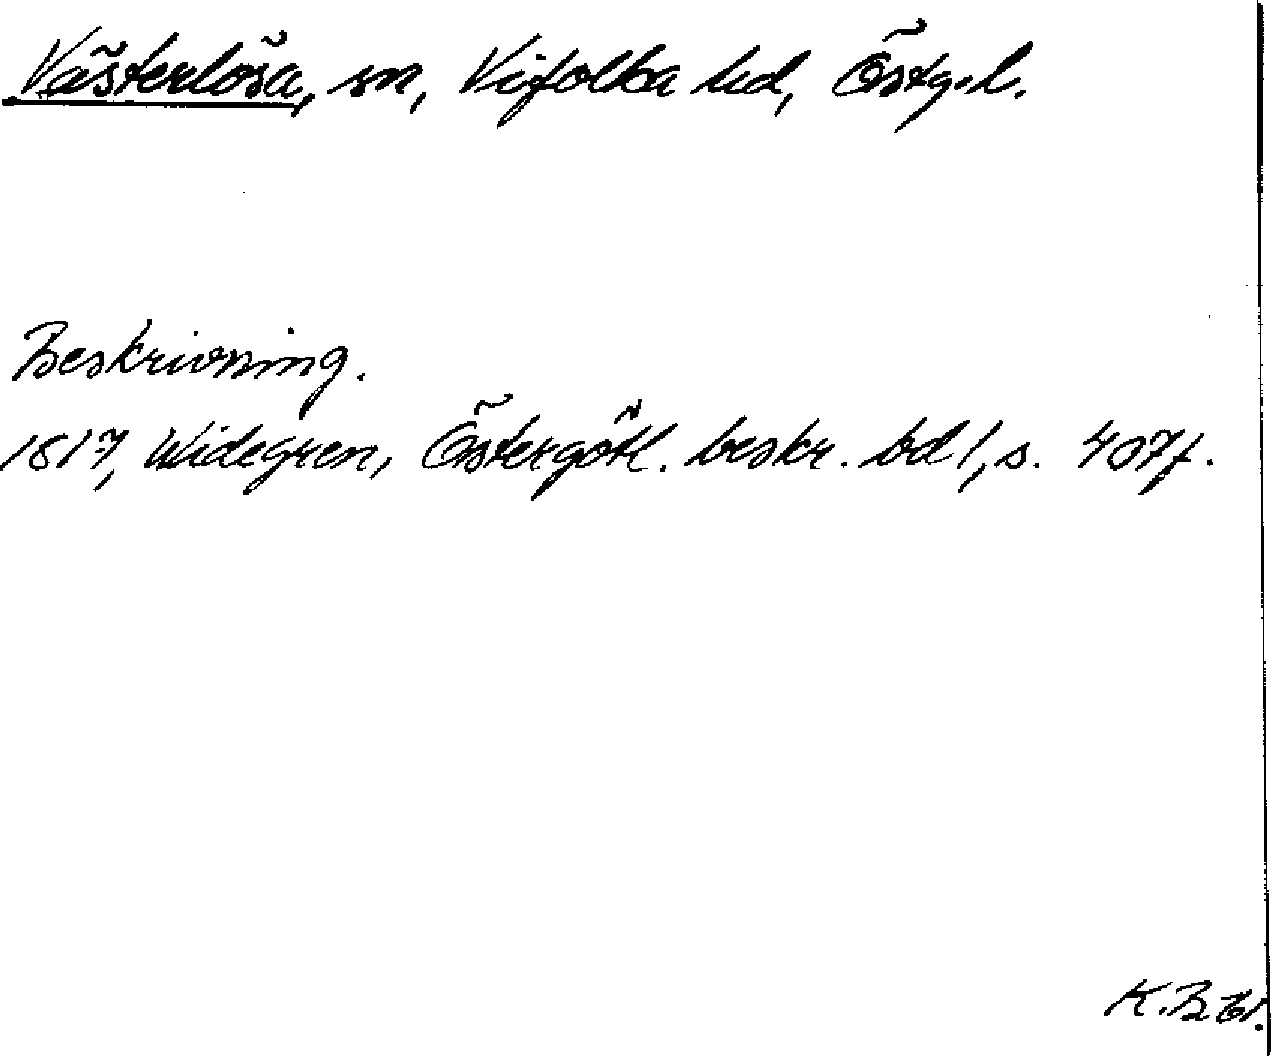 Västerlösa, sn, Vifolka hd, Östg.l.
Beskrivning.
1817, Widegren, Östergötl. beskr. bd 1, s. 407f.
K.B.